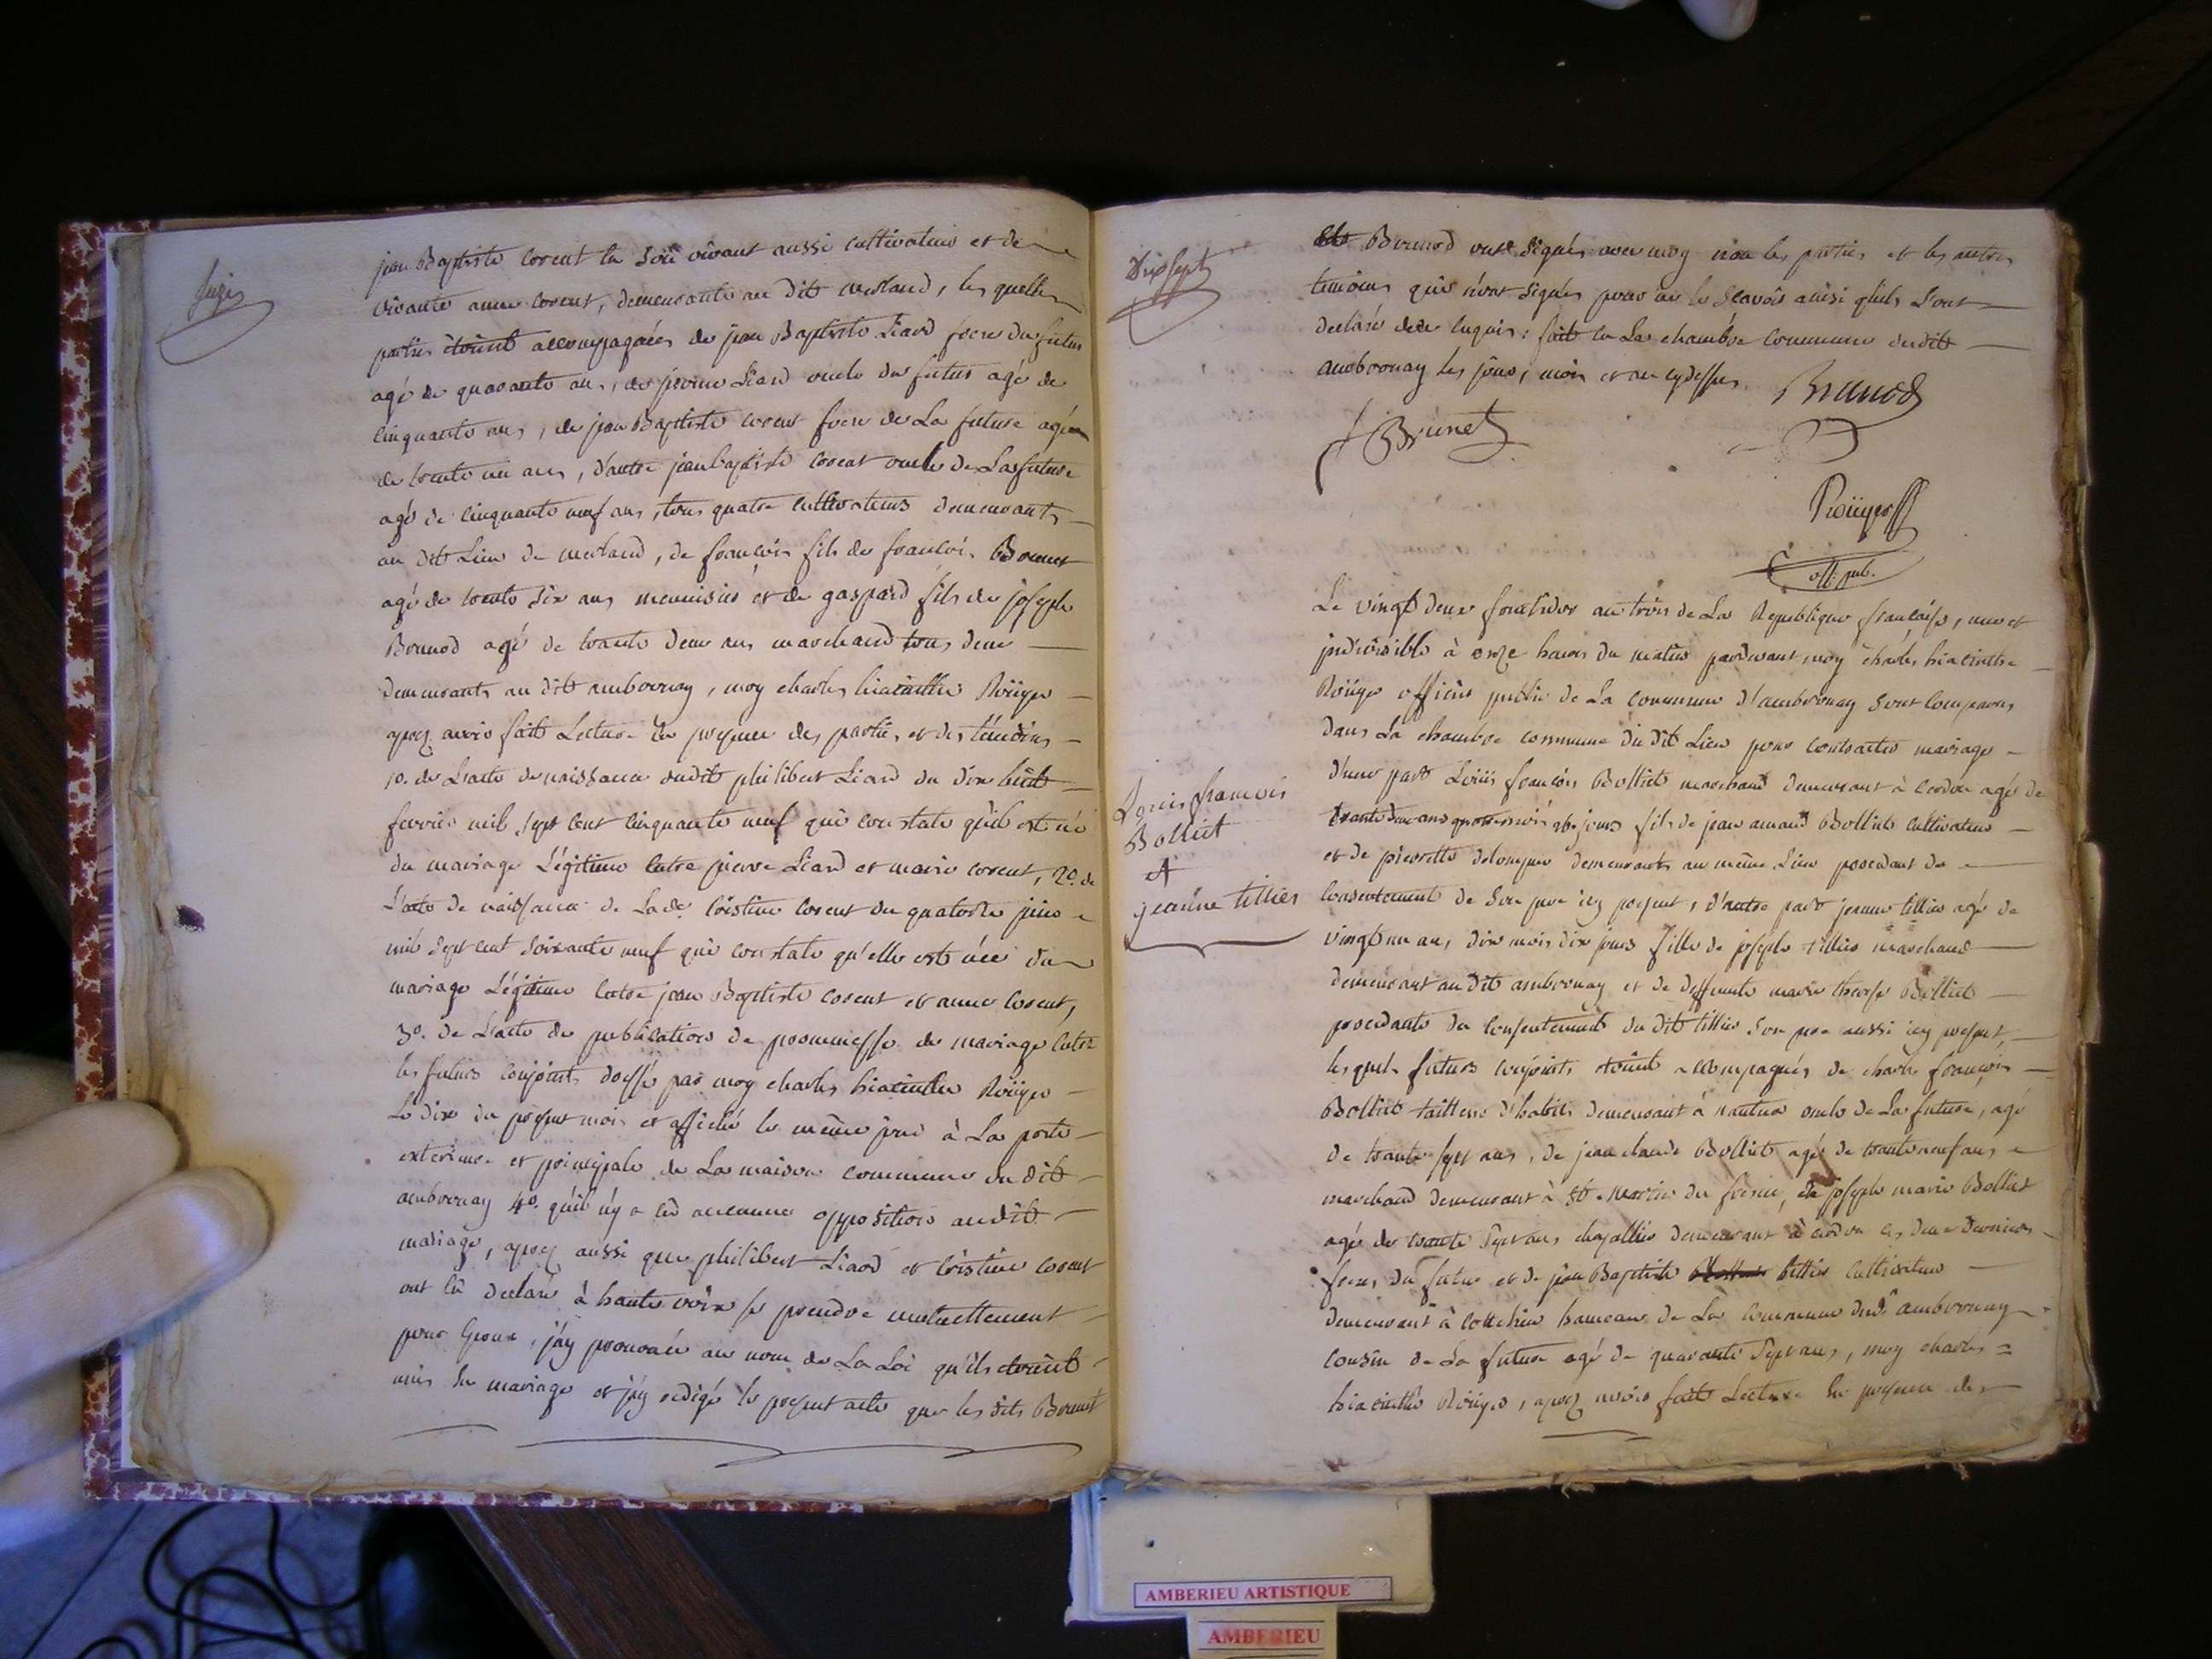 Seize
jean Baptiste corent la son vivant aussi cultivateur et de
vivante anne corent, demeurante au dit merland, les quelles
parties étoient accompagnées de jean Baptiste Liard frere du futur
agé de quarante ans, de pierre Liard oncle du futur agé de
cinquante ans, de jean Baptiste corent frere de La future agé
de trente un ans, d'autre jean baptiste corent oncle de La future
agé de cinquante neuf ans, tous quatre cultivateurs demeurants
au dit Lieu de merland, de francois fils de francois Bonnet
agé de trente six ans menuisier et de gaspard fils de joseph
Brunod agé de trente deux ans marchand tous deux
demeurants au dit ambronay, moy charles hiacinthe Roüyer
aprez avoir fait Lecture en presence des parties et des témoins
1º. de L'acte de naissance dudit philibert Liard du dix huit
fevrier mil sept cent cinquante neuf qui constate qu'il est né
du mariage Légitime entre pierre Liard et marie corent, 2º. de
L'acte de naissance de Lade. cristine corent du quatorze juin
mil sept cent soixante neuf qui constate qu'elle est née du
mariage Légitime entre jean Baptiste corent et anne corent,
3º. de L'acte de publication de promesse de mariage entre
les futurs conjoints dressé par moy charles hiacinthe Roüyer
Le dix du present mois et affiché le même jour à La porte
exterieure et principale de La maison commune du dit
ambronay 4º. qu'il n'y a eu aucune opposition audit
mariage, aprez aussi que philibert Liard et cristine corent
ont eû declaré à haute voix se prendre mutuellement
pour Epoux, j'ay prononcé au nom de La Loi qu'ils étoient
unis en mariage et j'ay redigé le present acte que les dits Bonnet
Dix sept
et Brunod ont signés avec moy non les parties et les autres
temoins qui n'ont signés pour ne le scavoir ainsi qu'ils L'ont
declaré de ce enquis: fait en La chambre commune dudit
ambronay les jour, mois et an cydessus. Brunod
Brunet
Roüyer
off. pub.
Le vingt deux fructidor an trois de La Republique francaise, une et
jndivisible à onze heures du matin pardevant moy charles hiacinthe
Roüyer officier public de La commune d'ambronay sont comparus
dans La chambre commune du dit Lieu pour contracter mariage
d'une part Loüis francois Bolliet marchand demeurant à cerdon agé de
trente deux ans quatre mois jours fils de jean Bolliet cultivateur
et de pierrette demeurants au même Lieu procedant du
consentement de son pere icy present, d'autre part jeanne tillier agé de
vingt un ans, dix mois dix jours fille de joseph tillier marchand
demeurant au dit ambronay et de deffunte marie therese Bolliet
procedante du consentement du dit tillier son pere aussi icy present,
les quels futurs conjoints étoient accompagnés de charles francois
Bolliet tailleur d'habits demeurant à nantua oncle de La future, agé
de trente sept ans, de jean claude Bolliet agé de trente neuf ans
marchand demeurant à St. Martin du fresne, de joseph marie Bolliet
agé de trente sept ans chapellier demeurant à cerdon ces deux derniers
freres du futur et de jean Baptiste tillier cultivateur
demeurant à hameau de La commune dud. ambronay
cousin de La future agé de quarante sept ans, moy charles
hiacinthe Roüyer, aprez avoir fait Lecture en presence des
Louis francois
Bolliet
et
jeanne tillier
AMBERIEU ARTISTIQUE
AMBERIEU